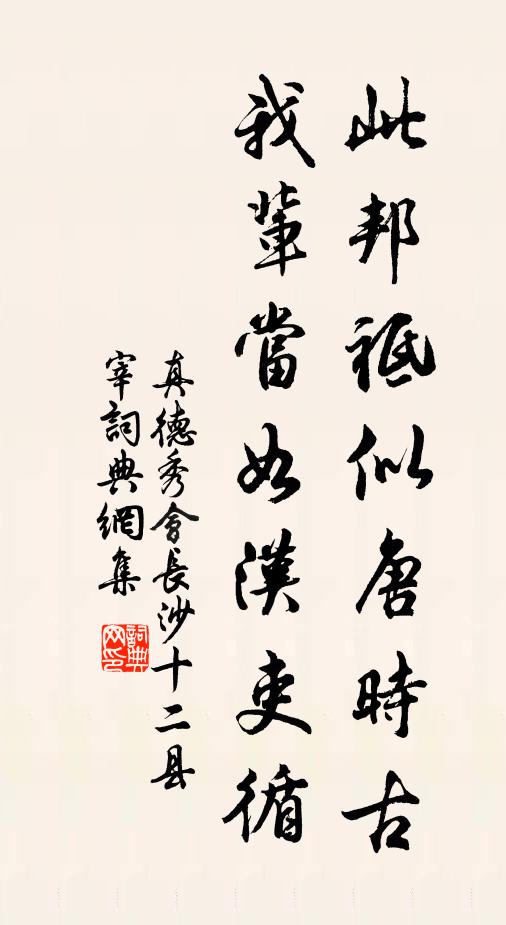 此邦祗似唐時古
我輩當如漢吏循
真德秀會長沙十二县
宰詞典網集
詞典網印